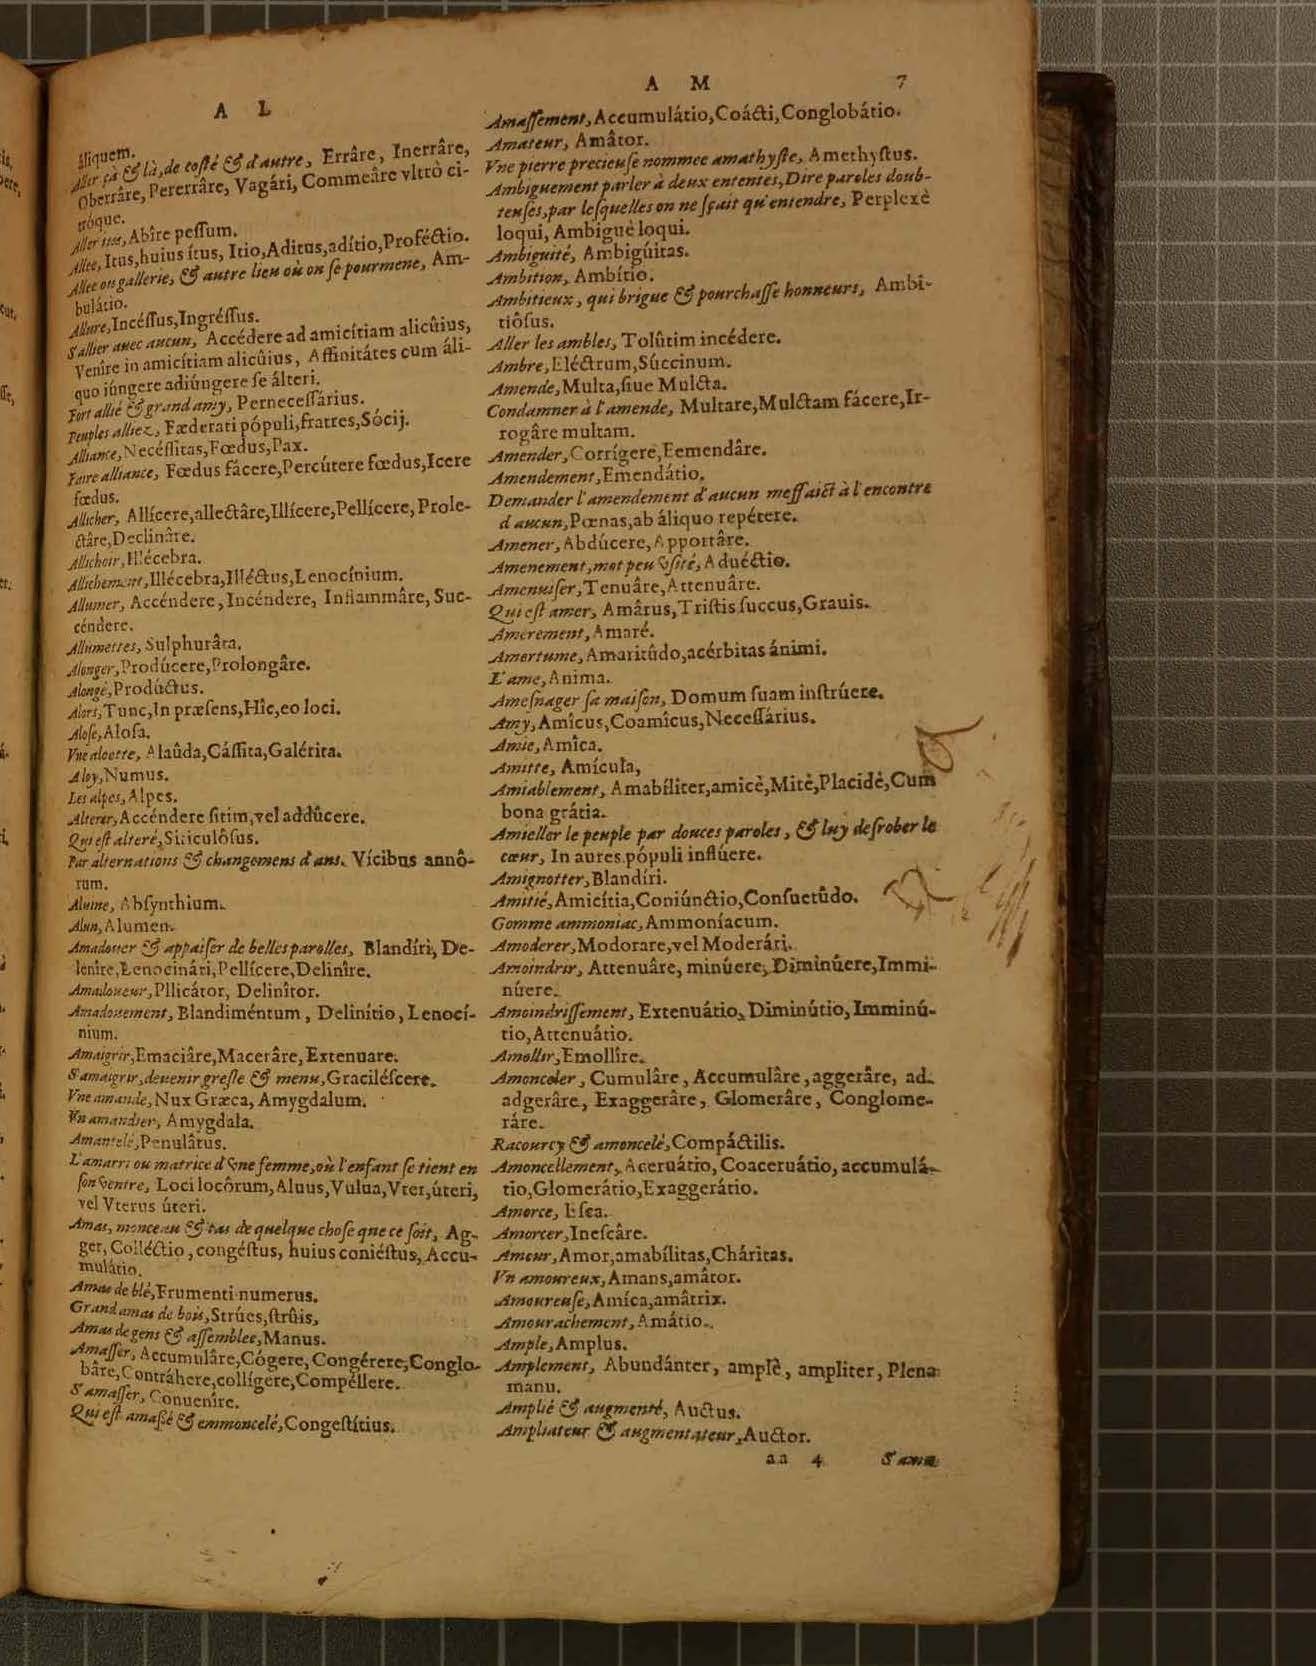 A L
áliquem.
Aller çà & là, de costé & d'autre, Errâre, Inerrâre,
Oberrâre, Pererrâre, Vagári, Commeâre vltrò ci-
tróque.
Aller Abîre pessum.
Allee, Itus, huius ítus, Itio, Aditus, adítio, Proféctio.
Allee ou gallerie, & autre lieu où on se pourmene, Am-
bulátio.
Allure, Incéssus, Ingréssus.
S'allier auec aucun, Accédere ad amicítiam alicûius,
Venîre in amicítiam alicûius, Affinitátes cum áli-
quo iúngere adiúngere se álteri.
Fort allié & grand amy, Pernecessárius.
Peuples alliez, Fæderati pópuli, fratres, Sócij.
Alliance, Necéssitas, Fœdus, Pax.
Faire alliance, Fœdus fácere, Percútere fœdus, Icere
fœdus.
Allicher, Allícere, allectâre, Illícere, Pellícere, Prole-
ctâre, Declinâre.
Allichoir, Illécebra.
Allichement, Illécebra, Illéctus, Lenocínium.
Allumer, Accéndere, Incéndere, Inflammâre, Suc-
céndere.
Allumettes, Sulphurâta.
Alonger, Prodúcere, Prolongâre.
Alongé, Prodúctus.
Alors, Tunc, In præsens, Hîc, eo loci.
Alose, Alosa.
Vne aloette, Alaûda, Cássita, Galérita.
Aloy, Numus.
Les alpes, Alpes.
Alterer, Accéndere sitim, vel addûcere.
Qui est alteré, Siticulôsus.
Par alternations & changemens d'ans, Vícibus annô-
rum.
Aluine, Absynthium.
Alun, Alumen.
Amadouer & appaiser de belles parolles, Blandíri, De-
lenîre, Lenocinári, Pellícere, Delinîre.
Amadoueur, Pllicátor, Delinîtor.
Amadouement, Blandiméntum, Delinítio, Lenocí-
nium.
Amaigrir, Emaciâre, Macerâre, Extenuare.
S'amaigrir, deuenir gresle & menu, Graciléscere.
Vne amande, Nux Græca, Amygdalum.
Vn amandier, Amygdala.
Amantelé, Penulâtus.
L'amarri ou matrice d'vne femme, où l'enfant se tient en
son ventre, Loci locôrum, Aluus, Vulua, Vter, úteri,
vel Vterus úteri.
Amas, monceau & tas de quelque chose que ce soit, Ag-
ger, Colléctio, congéstus, huius coniéstus, Accu-
mulátio.
Amas de blé, Frumenti numerus.
Grand amas de bois, Strúes, strûis,
Amas de gens & assemblee, Manus.
Amasser, Accumulâre, Cógere, Congérere, Conglo-
bâre, Contráhere, collígere, Compéllere.
S'amasser, Conuenîre.
Qui est amassé & emmoncelé, Congestítius.
A M 7
Amassement, Accumulátio, Coácti, Conglobátio.
Amateur, Amâtor.
Vne pierre precieuse nommee amathyste, Amethystus.
Ambiguement parler à deux ententes, Dire paroles doub-
teuses, par lesquelles on ne sçait qu'entendre, Perplexè
loqui, Ambiguè loqui.
Ambiguité, Ambigúitas.
Ambition, Ambítio.
Ambitieux, qui brigue & pourchasse honneurs, Ambi-
tiôsus.
Aller les ambles, Tolûtim incédere.
Ambre, Eléctrum, Súccinum.
Amende, Multa, siue Mulcta.
Condamner à l'amende, Multare, Mulctam fácere, Ir-
rogâre multam.
Amender, Corrígere, Eemendâre.
Amendement, Emendátio.
Demander l'amendement d'aucun meffaict à l'encontre
d'aucun, Pœnas, ab áliquo repétere.
Amener, Abdúcere, Apportâre.
Amenement, mot peu vsité, Aduéctio.
Amenuiser, Tenuâre, Attenuâre.
Qui est amer, Amârus, Tristis succus, Grauis.
Amerement, Amaré.
Amertume, Amaritûdo, acérbitas ánimi.
L'ame, Anima.
Amesnager sa maison, Domum suam instrúere.
Amy, Amîcus, Coamîcus, Necessárius.
Amie, Amîca.
Amitte, Amícula,
Amiablement, Amabíliter, amicè, Mitè, Placidè, Cum
bona grátia.
Amieller le peuple par douces paroles, & luy desrober le
cœur, In aures pópuli inflúere.
Amignotter, Blandíri.
Amitié, Amicítia, Coniúnctio, Consuetûdo.
Gomme ammoniac, Ammoníacum.
Amoderer, Modorare, vel Moderári.
Amoindrir, Attenuâre, minúere, Diminúere, Immi-
núere.
Amoindrissement, Extenuátio, Diminútio, Imminú-
tio, Attenuátio.
Amollir, Emollîre.
Amonceler, Cumulâre, Accumulâre, aggerâre, ad-
adgerâre, Exaggerâre, Glomerâre, Conglome-
râre.
Racourcy & amoncelé, Compáctilis.
Amoncellement, Aceruátio, Coaceruátio, accumulá-
tio, Glomerátio, Exaggerátio.
Amorce, Esca.
Amorcer, Inescâre.
Amour, Amor, amabílitas, Cháritas.
Vn amoureux, Amans, amâtor.
Amoureuse, Amíca, amâtrix.
Amourachement, Amátio.
Ample, Amplus.
Amplement, Abundánter, amplè, ampliter, Plena
manu.
Amplié & augmenté, Auctus.
Ampliateur & augmentateur, Auctor.
aa 4